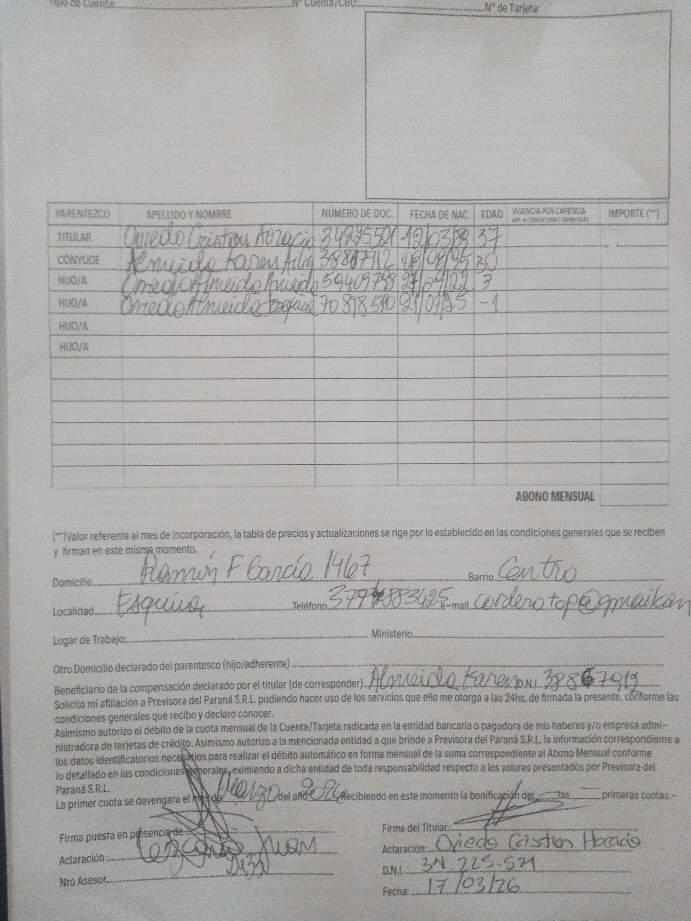 Tipo de Cuenta: N° Cuenta/CBU: N° de Tarjeta:
PARENTEZCO APELLIDO Y NOMBRE NÚMERO DE DOC. FECHA DE NAC. EDAD VIGENCIA POR CARENCIA IMPORTE (**)
TITULAR Oviedo Cristian Horacio 12/03/89 37
CÓNYUGE Almeida Karen 30
HIJO/A Oviedo Almeida 3
HIJO/A Oviedo Almeida 21/01/25 -1
HIJO/A
HIJO/A
ABONO MENSUAL
(**)Valor referente al mes de incorporación, la tabla de precios y actualizaciones se rige por lo establecido en las condiciones generales que se reciben
y firman en este mismo momento.
Domicilio Ramón F García 1467 Barrio Centro
Localidad Esquina Teléfono e-mail
Lugar de Trabajo: Ministerio
Otro Domicilio declarado del parentesco (hijo/adherente)
Beneficiario de la compensación declarado por el titular (de corresponder) Almeida Karen D.N.I. 38867912
Solicito mi afiliación a Previsora del Paraná S.R.L. pudiendo hacer uso de los servicios que ello me otorga a las 24hs. de firmada la presente, conforme las
condiciones generales que recibo y declaro conocer.
Asimismo autorizo el débito de la cuota mensual de la Cuenta/Tarjeta radicada en la entidad bancaria o pagadora de mis haberes y/o empresa admi-
nistradora de terjetas de crédito. Asimismo autorizo a la mencionada entidad a que brinde a Previsora del Paraná S.R.L. la información correspondiente a
los datos identificatorios necesarios para realizar el débito automático en forma mensual de la suma correspondiente al Abono Mensual conforme
lo detallado en las condiciones generales, eximiendo a dicha entidad de toda responsabilidad respecto a los valores presentados por Previsora del
Paraná S.R.L.
La primer cuota se devengara el mes de Marzo del año 2026 Recibiendo en este momento la bonificación del las primeras cuotas.-
Firma puesta en presencia de Firma del Titular
Aclaración: Juan Aclaración: Oviedo Cristian Horacio
Nro Asesor D.N.I.
Fecha: 17/03/26